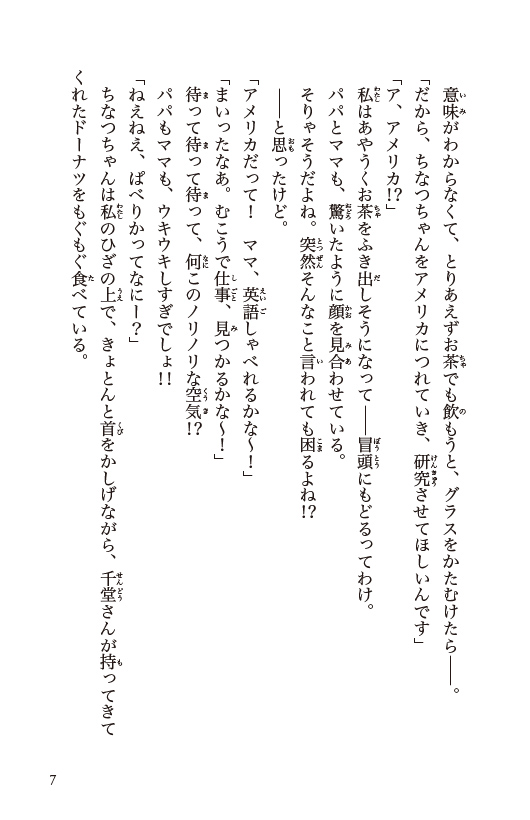 意味がわからなくて、とりあえずお茶でも飲もうと、グラスをかたむけたら――。
「だから、ちなつちゃんをアメリカにつれていき、研究させてほしいんです」
「ア、アメリカ!?」
私はあやうくお茶をふき出しそうになって――冒頭にもどるってわけ。
パパとママも、驚いたように顔を見合わせている。
そりゃそうだよね。突然そんなこと言われても困るよね!?
――と思ったけど。
「アメリカだって！　ママ、英語しゃべれるかな〜！」
「まいったなあ。むこうで仕事、見つかるかな〜！」
待って待って待って、何このノリノリな空気!?
パパもママも、ウキウキしすぎでしょ!!
「ねえねえ、ぱべりかってなにー？」
ちなつちゃんは私のひざの上で、きょとんと首をかしげながら、千堂さんが持ってきて
くれたドーナツをもぐもぐ食べている。
7